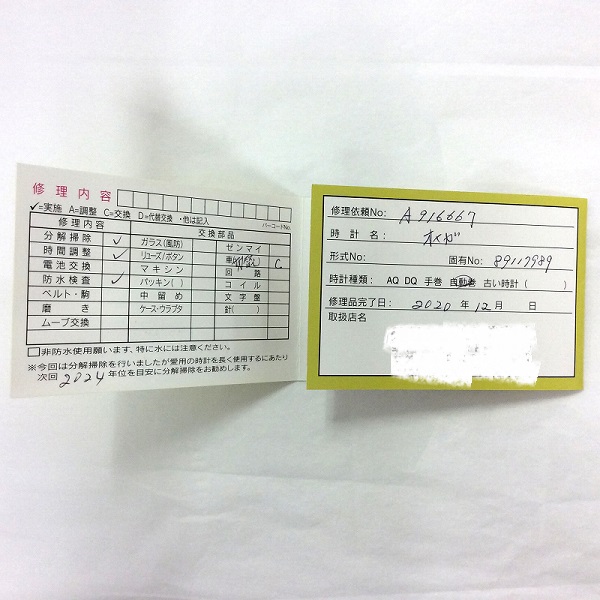 修理内容
✓=実施 A=調整 C=交換 D=代替交換 ・他は記入
バーコードNo.
修理内容 交換部品
分解掃除 ✓ ガラス(風防) ゼンマイ
時間調整 ✓ リューズ/ボタン 車 C
電池交換 マキシン 回路
防水検査 ✓ パッキン( ) コイル
ベルト・駒 中留め 文字盤
磨き ケース・ウラブタ 針( )
ムーブ交換
□非防水使用願います、特に水には注意ください。
※今回は分解掃除を行いましたが愛用の時計を長く使用するにあたり
次回 2024 年位を目安に分解掃除をお勧めします。
修理依頼No: A916667
時計名: オメガ
形式No: 固有No: 89117989
時計種類: AQ DQ 手巻 自動巻 古い時計( )
修理品完了日: 2020 年 12 月 日
取扱店名